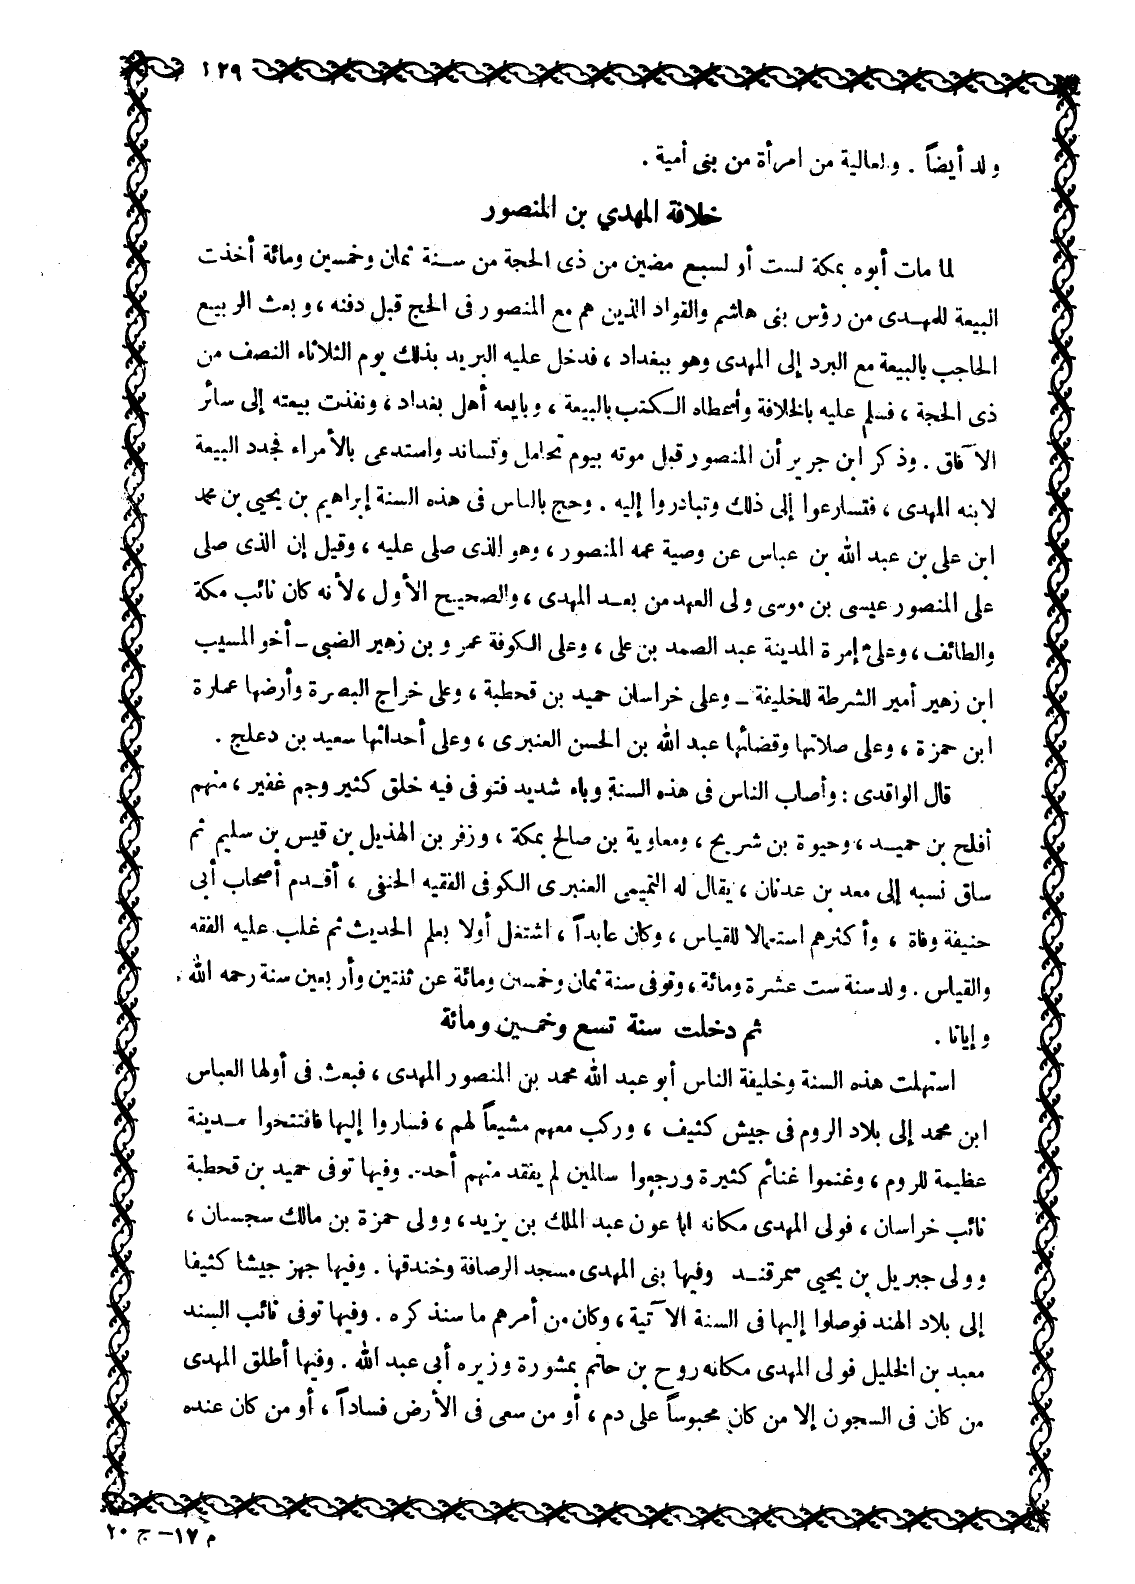 ١٢٩
ولد أيضاً . والعالية من امرأة من بنى أمية .
خلافة المهدي بن المنصور
لما مات أبوه بمكة لست أو لسبع مضين من ذى الحجة من سنة ثمان وخمسين ومائة أخذت
البيعة للمهدى من رؤس بنى هاشم والقواد الذين هم مع المنصور فى الحج قبل دفنه ، وبعث الربيع
الحاجب بالبيعة مع البرد إلى المهدى وهو ببغداد ، فدخل عليه البريد بذلك يوم الثلاثاء النصف من
ذى الحجة ، فسلم عليه بالخلافة وأعطاه الكتب بالبيعة ، وبايعه أهل بغداد ، ونفذت بيعته إلى سائر
الآفاق . وذكر ابن جرير أن المنصور قبل موته بيوم تحامل وتساند واستدعى بالأمراء فجدد البيعة
لابنه المهدى ، فتسارعوا إلى ذلك وتبادروا إليه . وحج بالناس فى هذه السنة إبراهيم بن يحيى بن محمد
ابن على بن عبد الله بن عباس عن وصية عمه المنصور ، وهو الذى صلى عليه ، وقيل إن الذى صلى
على المنصور عيسى بن موسى ولى العهد من بعد المهدى ، والصحيح الأول ، لأنه كان نائب مكة
والطائف ، وعلى إمرة المدينة عبد الصمد بن على ، وعلى الكوفة عمرو بن زهير الضبى ــ أخو المسيب
ابن زهير أمير الشرطة للخليفة ــ وعلى خراسان حميد بن قحطبة ، وعلى خراج البصرة وأرضها عمارة
ابن حمزة ، وعلى صلاتها وقضائها عبد الله بن الحسن العنبرى ، وعلى أحداثها سعيد بن دعلج .
قال الواقدى : وأصاب الناس فى هذه السنة وباء شديد فتوفى فيه خلق كثير وجم غفير ، منهم
أفلح بن حميد ، وحيوة بن شريح ، ومعاوية بن صالح بمكة ، وزفر بن الهذيل بن قيس بن سليم ثم
ساق نسبه إلى معد بن عدنان ، يقال له التميمى العنبرى الكوفى الفقيه الحنفى ، أقدم أصحاب أبى
حنيفة وفاة ، وأكثرهم استعمالا للقياس ، وكان عابداً ، اشتغل أولا بعلم الحديث ثم غلب عليه الفقه
والقياس . ولد سنة ست عشرة ومائة ، وتوفى سنة ثمان وخمسين ومائة عن ثنتين وأربعين سنة رحمه الله .
وإيانا .
ثم دخلت سنة تسع وخمسين ومائة
استهلت هذه السنة وخليفة الناس أبو عبد الله محمد بن المنصور المهدى ، فبعث فى أولها العباس
ابن محمد إلى بلاد الروم فى جيش كثيف ، وركب معهم مشيعاً لهم ، فساروا إليها فافتتحوا مدينة
عظيمة للروم ، وغنموا غنائم كثيرة ورجعوا سالمين لم يفقد منهم أحد . وفيها توفى حميد بن قحطبة
نائب خراسان ، فولى المهدى مكانه ابا عون عبد الملك بن يزيد ، وولى حمزة بن مالك سجستان ،
وولى جبريل بن يحيى سمرقند وفيها بنى المهدى مسجد الرصافة وخندقها . وفيها جهز جيشا كثيفا
إلى بلاد الهند فوصلوا إليها فى السنة الآتية ، وكان من أمرهم ما سنذكره . وفيها توفى نائب السند
معبد بن الخليل فولى المهدى مكانه روح بن حاتم بمشورة وزيره أبى عبد الله . وفيها أطلق المهدى
من كان فى السجون إلا من كان محبوساً على دم ، أو من سعى فى الأرض فساداً ، أو من كان عنده
م ١٧ – ج ٢٠